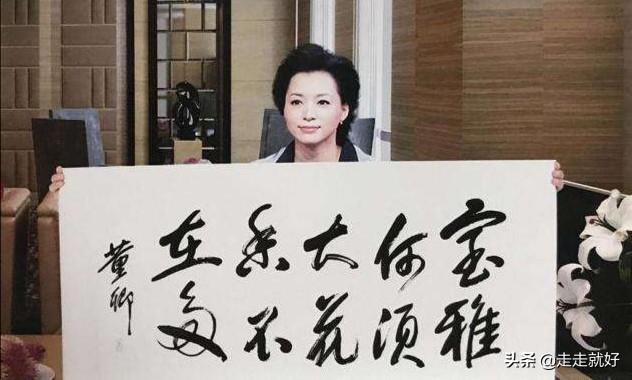 室雅
何须
大花
香不
在多
董卿
头条 @走走就好